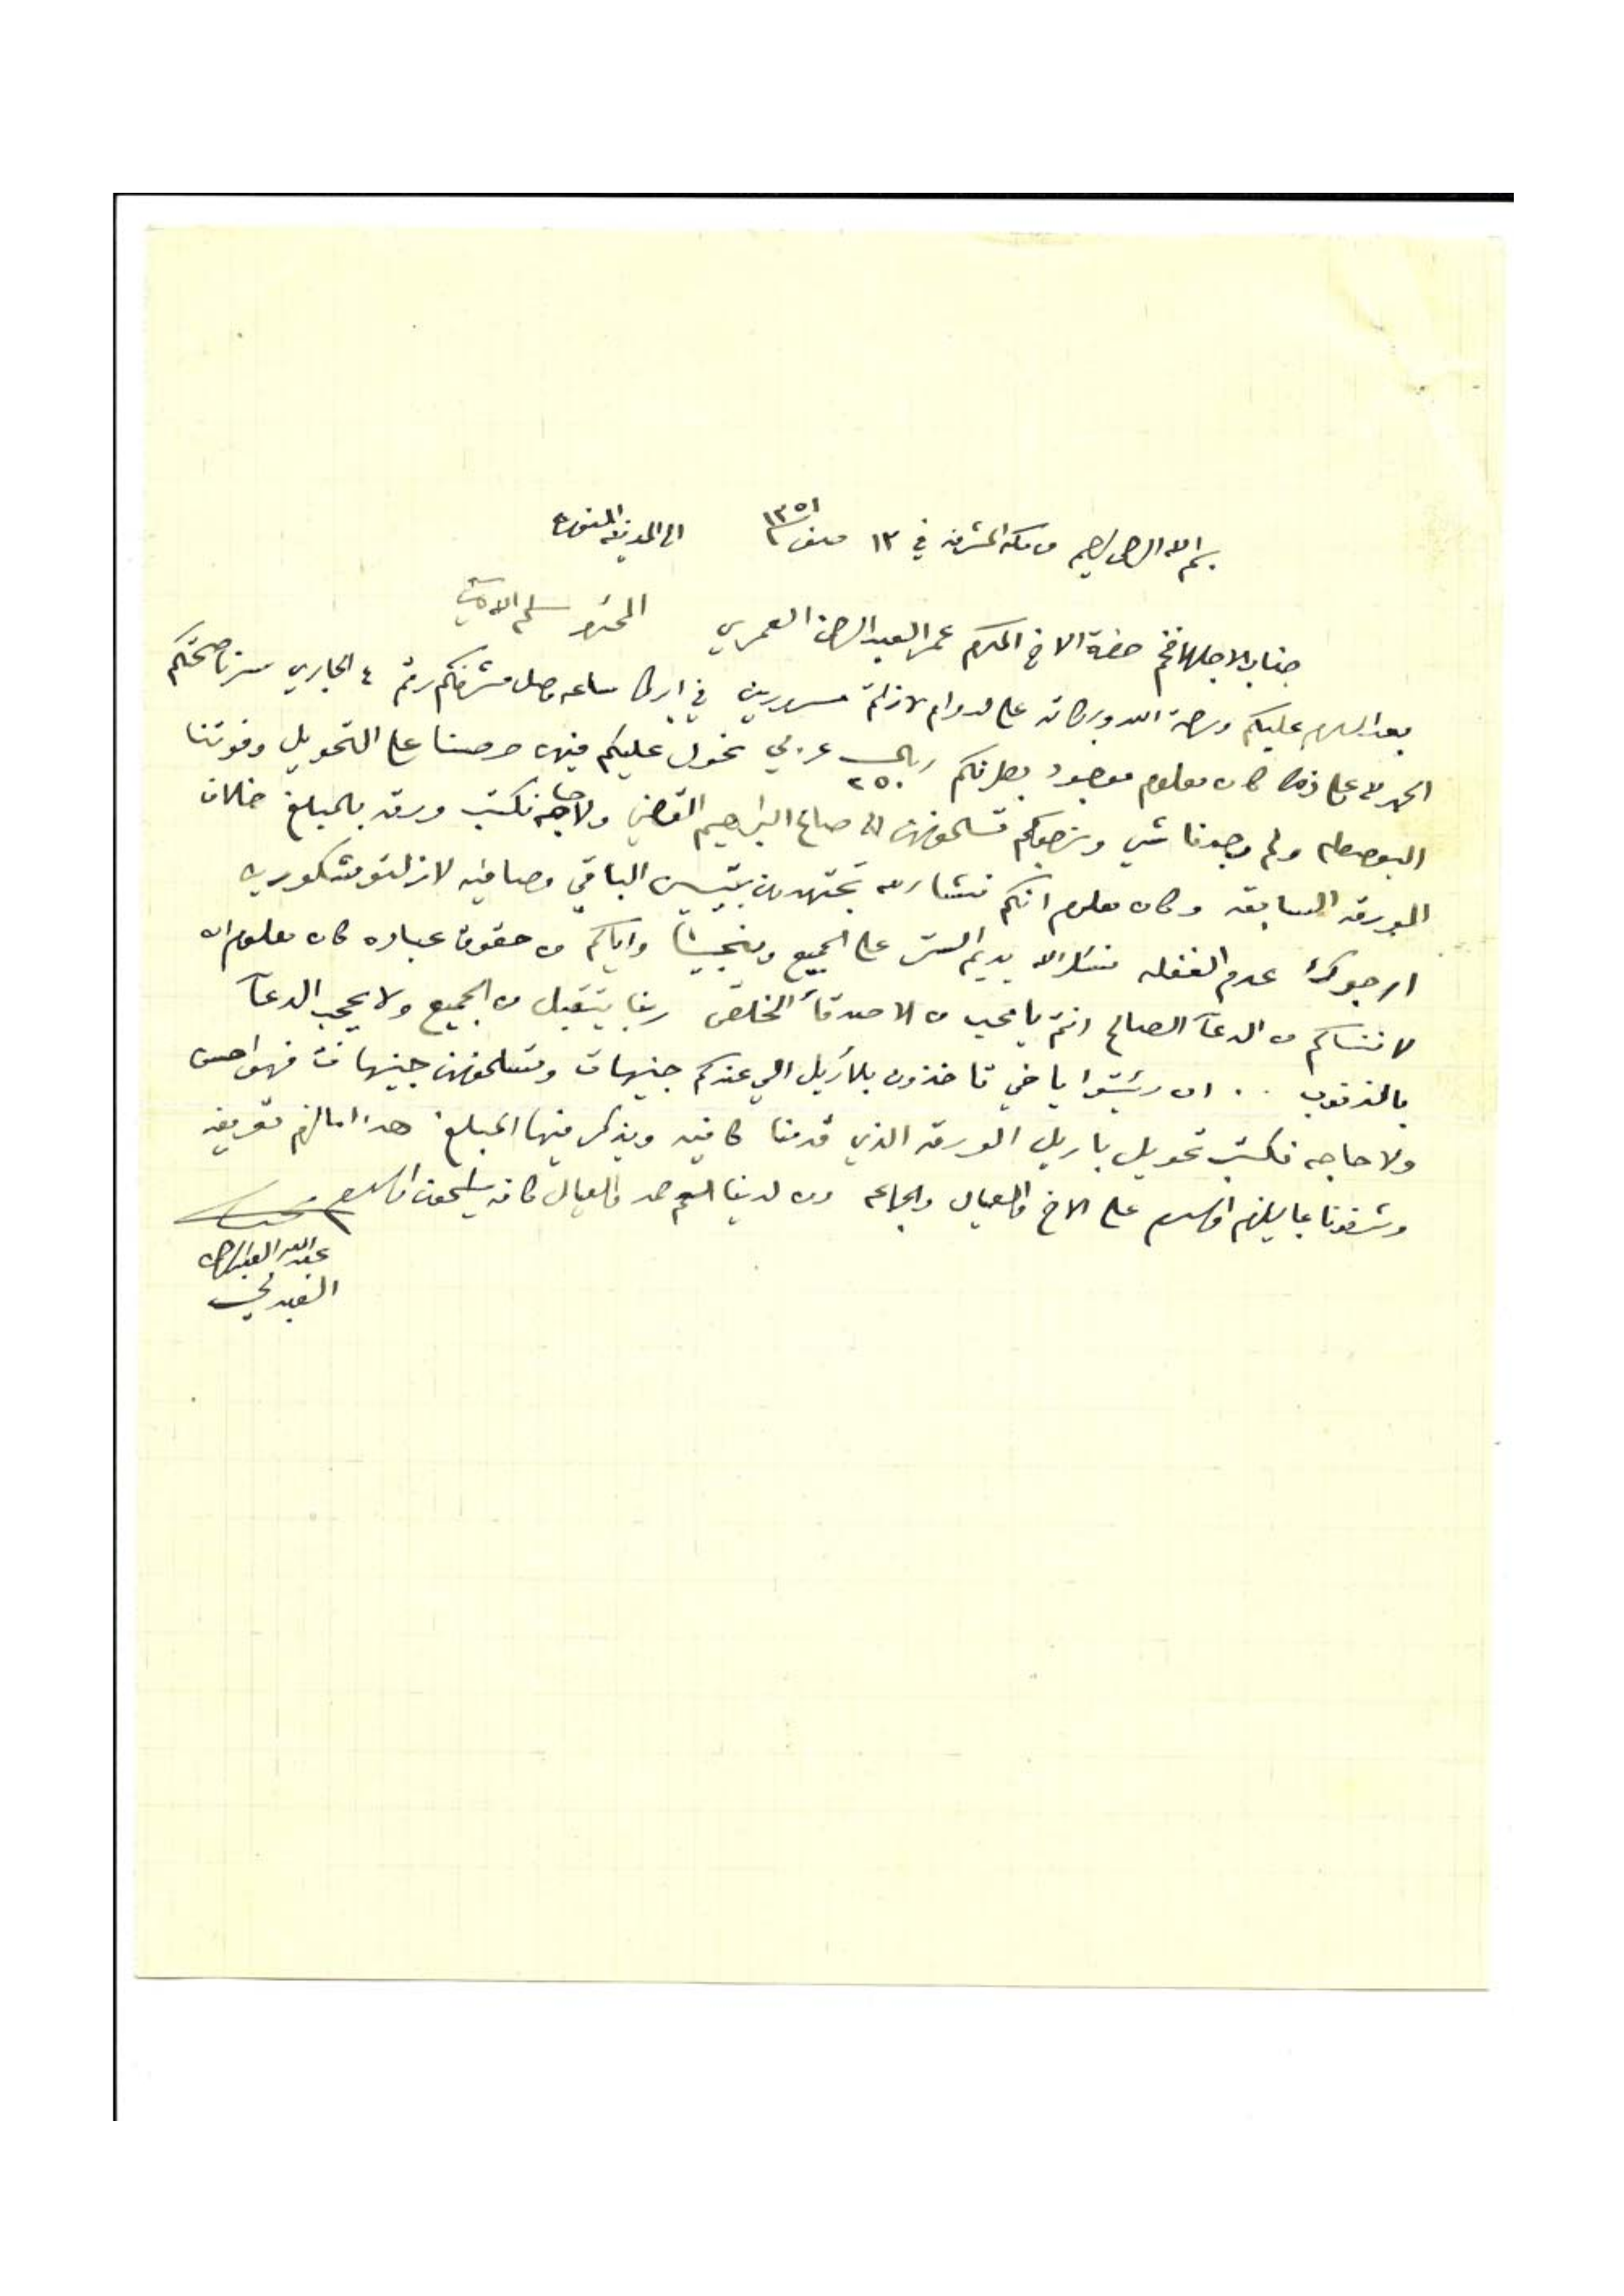 بسم الله الرحمن الرحيم من مكة المشرفة في ١٣ صفر ١٣٥١ الى المدينة المنورة
جناب الاجل الافخم حضرة الاخ المكرم عمر العبد الرحمن العمري المحترم سلمه الله آمين
بعد السلام عليكم ورحمة الله وبركاته على الدوام لازلتم مسرورين في ابرك ساعه وصل مشرفكم رقم ٤ الجاري سرنا صحتكم
الحمد لله على ذلك كان معلوم موجود بطرفكم ريال عربي ٢٥٠ نحول عليكم فيهن حرصنا على التحويل وفوتنا
البوصطه ولم وجدنا شي ونرجوكم تسلمونهن الى صالح البراهيم القاضي ولا حاجه نكتب ورقه بالمبلغ خلاف
الورقه السابقه وكان معلوم انكم انشاء الله تجتهدون بتيسير الباقي وصافيه لازلتو مشكورين
ارجوك عدم الغفله نسئل الله يديم الستر على الجميع وينجينا واياكم من حقوق عباده كان معلوم ان
لا ننساكم من الدعآ الصالح انتم يا محب من الاصدقآ الخلص ربنا يتقبل من الجميع ولا يحجب الدعآ
بالذنوب .. ان رئيتوا ياخي تاخذون بالأريل الي عندكم جنيهات وتسلمونهن جنيهات فهو احسن
ولا حاجه نكتب تحويل باريل الورقه الذي قدمنا كافيه ويذكر فيها المبلغ هذا مالزم تعريفه
وشرفونا بما يلزم والسلام على الاخ والعيال والجماعه ومن لدينا الحمد والعيال كافه يسلمون والسلام
عبد الله العبد الرحمن